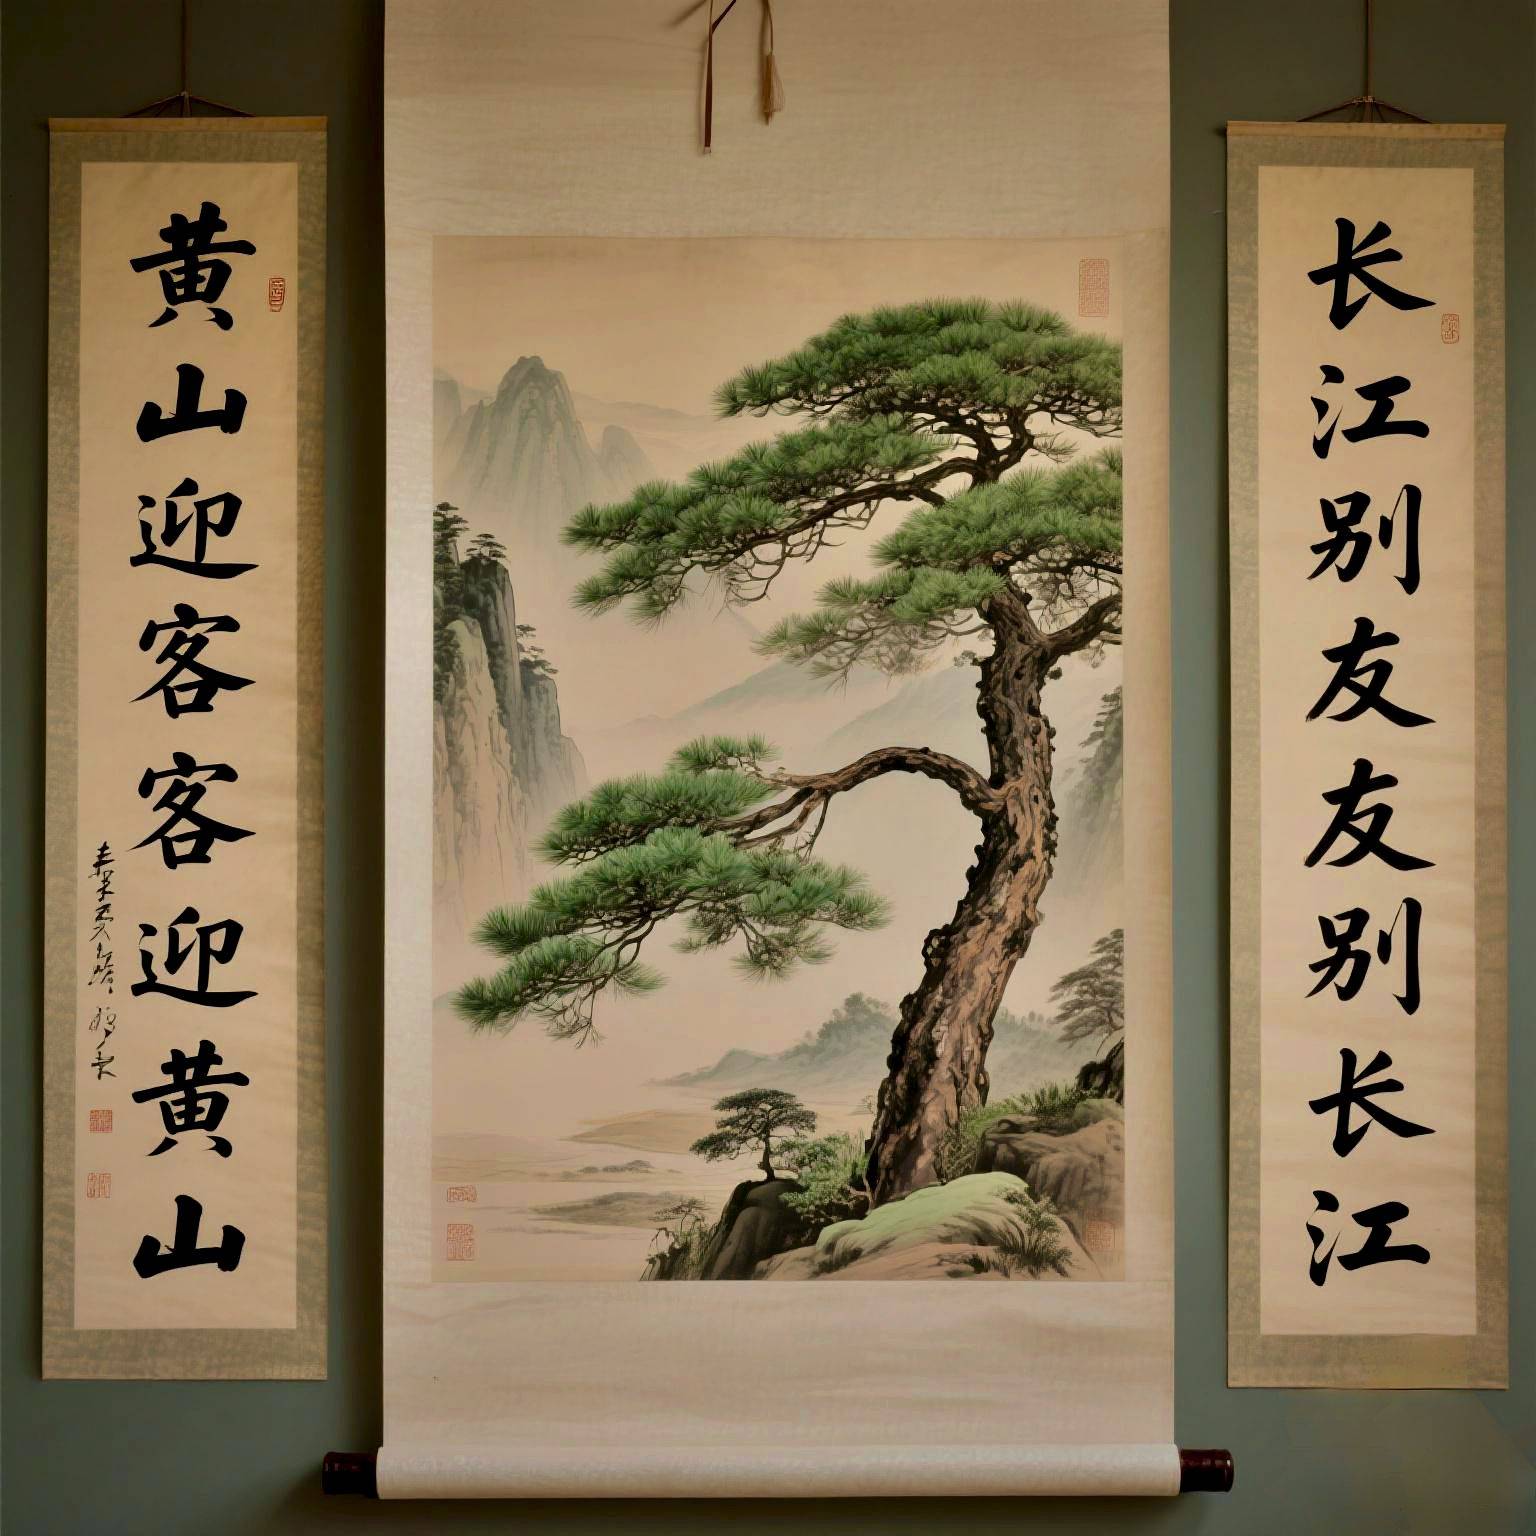 长江别友友别长江
黄山迎客客迎黄山